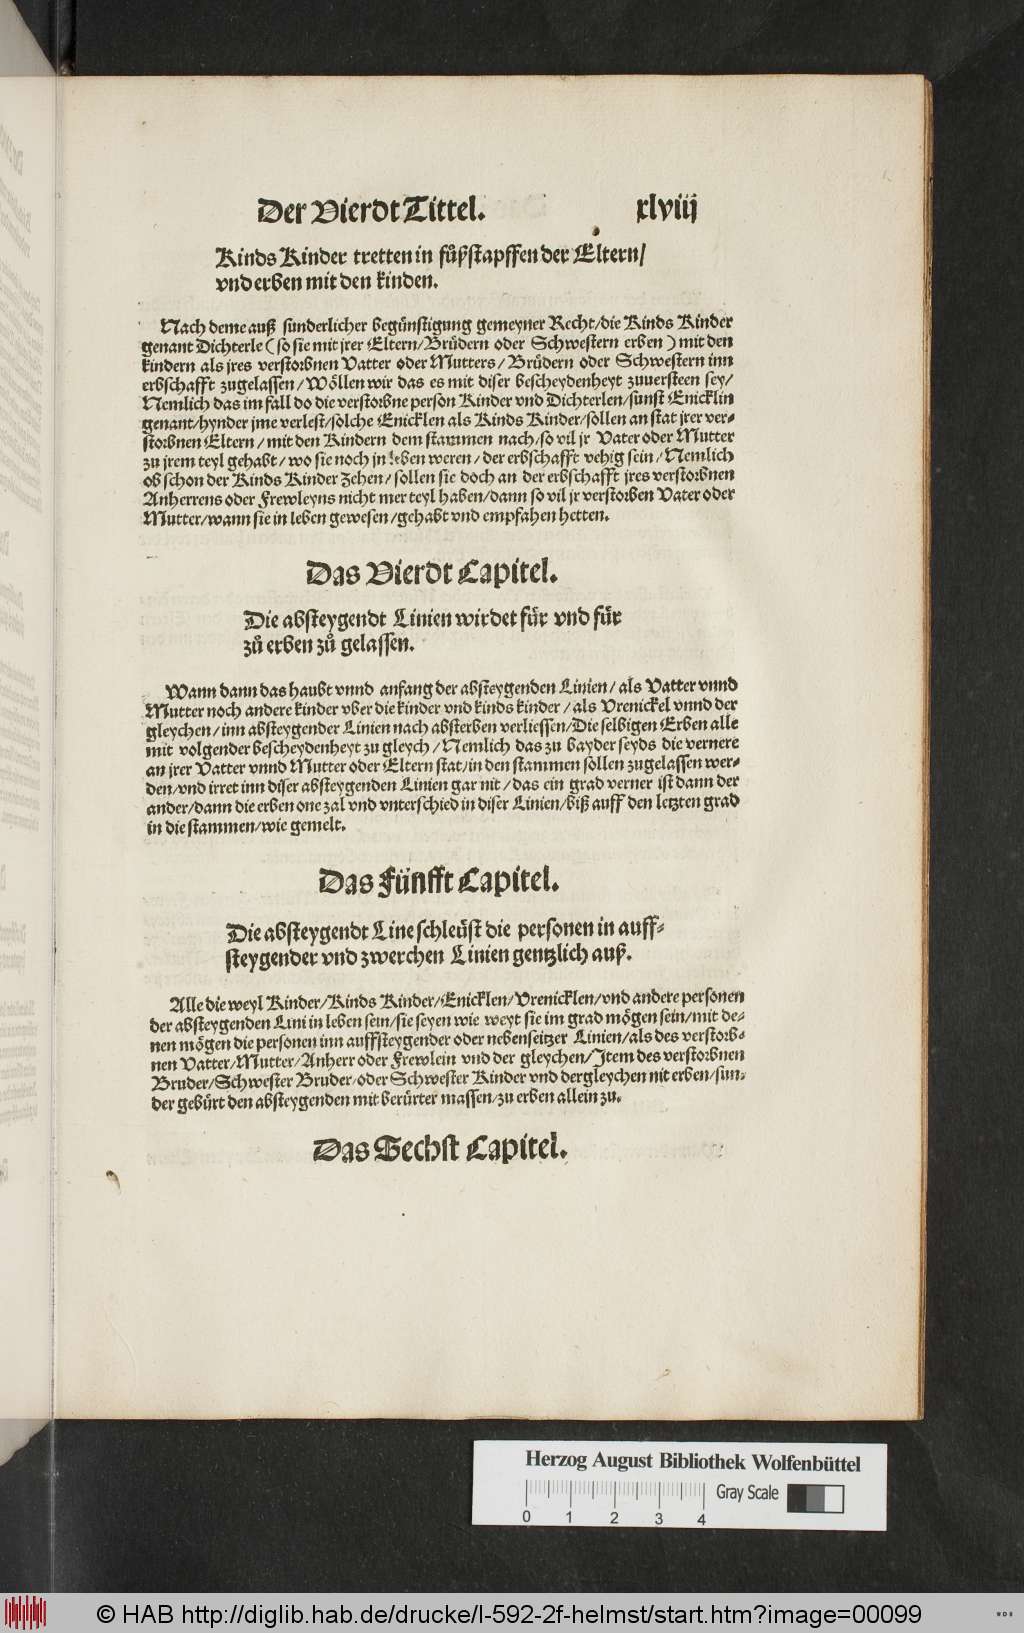 Der Vierdt Tittel. xlviij
Kinds Kinder tretten in fůßstapffen der Eltern/
vnd erben mit den kinden.
Nach deme auß sunderlicher begünstigung gemeyner Recht/die Kinds Kinder
genant Dichterle (so sie mit jrer Eltern/Brüdern oder Schwestern erben) mit den
kindern als jres verstorbnen Vatter oder Mutters/Brüdern oder Schwestern inn
erbschafft zugelassen/Wöllen wir das es mit diser bescheydenheyt zuuersteen sey/
Nemlich das im fall do die verstorbne person Kinder vnd Dichterlen/sunst Enicklin
genant/hynder jme verlest/solche Enicklen als Kinds Kinder/sollen an stat jrer ver-
storbnen Eltern/mit den Kindern dem stammen nach/so vil jr Vater oder Mutter
zu jrem teyl gehabt/wo sie noch jn leben weren/der erbschafft vehig sein/Nemlich
ob schon der Kinds Kinder Zehen/sollen sie doch an der erbschafft jres verstorbnen
Anherrens oder Frewleyns nicht mer teyl haben/dann so vil jr verstorben Vater oder
Mutter/wann sie in leben gewesen/gehabt vnd empfahen hetten.
Das Vierdt Capitel.
Die absteygendt Linien wirdet für vnd für
zů erben zů gelassen.
Wann dann das haubt vnnd anfang der absteygenden Linien/als Vatter vnnd
Mutter noch andere kinder vber die kinder vnd kinds kinder/als Vrenickel vnnd der
gleychen/inn absteygender Linien nach absterben verliessen/Die selbigen Erben alle
mit volgender bescheydenheyt zu gleych/Nemlich das zu bayder seyds die vernere
an jrer Vatter vnnd Mutter oder Eltern stat/in den stammen sollen zugelassen wer-
den/vnd irret inn diser absteygenden Linien gar nit/das ein grad verner ist dann der
ander/dann die erben one zal vnd vnterschied in diser Linien/biß auff den letzten grad
in die stammen/wie gemelt.
Das Fünfft Capitel.
Die absteygendt Line schleüst die personen in auff-
steygender vnd zwerchen Linien gentzlich auß.
Alle die weyl Kinder/Kinds Kinder/Enicklen/Vrenicklen/vnd andere personen
der absteygenden Lini in leben sein/sie seyen wie weyt sie im grad mögen sein/mit de-
nen mögen die personen inn auffsteygender oder nebenseitzer Linien/als des verstorb-
nen Vatter/Mutter/Anherr oder Frewlein vnd der gleychen/Item des verstorbnen
Bruder/Schwester Bruder/oder Schwester Kinder vnd dergleychen nit erben/sun-
der gebürt den absteygenden mit berürter massen/zu erben allein zu.
Das Sechst Capitel.
Herzog August Bibliothek Wolfenbüttel
Gray Scale
0 1 2 3 4
© HAB http://diglib.hab.de/drucke/l-592-2f-helmst/start.htm?image=00099